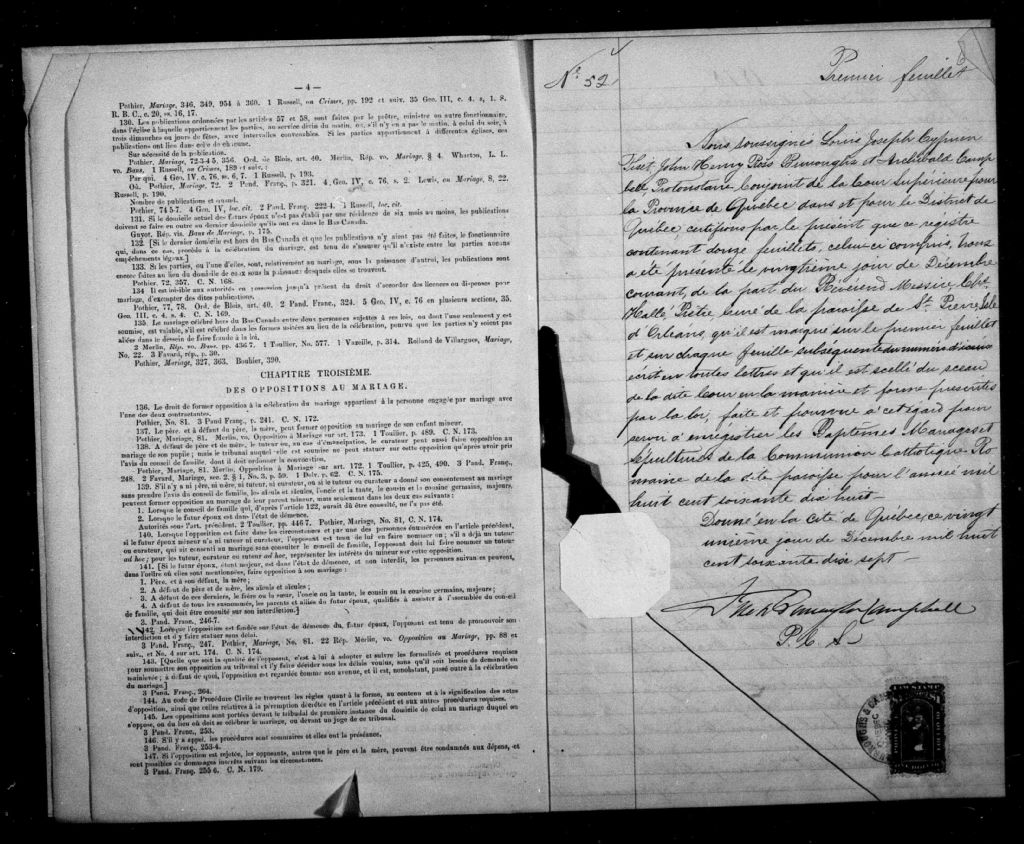 — 4 —
Pothier, Mariage, 346, 349, 954 à 360. 1 Russell, on Crimes, pp. 192 et suiv. 35 Geo. III, c. 4, s, 1. S.
R. B. C., c. 20, ss. 16, 17.
130. Les publications ordonnées par les articles 57 et 58, sont faites par le prêtre, ministre ou autre fonctionnaire,
dans l'église à laquelle appartiennent les parties, au service divin du matin, ou, s'il n'y en a pas le matin, à celui du soir, à
trois dimanches ou jours de fêtes, avec intervalles convenables. Si les parties appartiennent à différentes églises, ces
publications ont lieu dans celle de chacune.
Sur nécessité de la publication.
Pothier, Mariage, 72-3-4 5, 356. Ord. de Blois, art. 40. Merlin, Rép. vo. Mariage, § 4. Wharton, L. L.
vo. Bans, 1 Russell, on Crimes, 189 et suiv.
Par qui. 4 Geo. IV, c. 76, ss. 6, 7. 1 Russell, p. 193.
Où. Pothier, Mariage, 72. 2 Pand. Franç., p. 321. 4, Geo. IV, c. 76, s. 2. Lewis, on Mariage, 8, 22.
Russell, p. 190.
Nombre de publications et quand.
Pothier, 74 5-7. 4 Geo. IV, loc. cit. 2 Pand. Franç. 222-4. 1 Russell, loc. cit.
131. Si le domicile actuel des futurs époux n'est pas établi par une résidence de six mois au moins, les publications
doivent se faire en outre au dernier domicile qu'ils ont eu dans le Bas-Canada.
Guyot, Rép. vis. Bans de Mariage, p. 175.
132. [Si le dernier domicile est hors du Bas Canada et que les publications n'y aient pas été faites, le fonctionnaire
qui, dans ce cas, procède à la célébration du mariage, est tenu de s'assurer qu'il n'existe entre les parties aucuns
empêchements légaux.]
133. Si les parties, ou l'une d'elles, sont, relativement au mariage, sous la puissance d'autrui, les publications sont
encore faites au lieu du domicile de ceux sous la puissance desquels elles se trouvent.
Pothier, 72, 357. C. N. 168.
134 Il est loisible aux autorités en possession jusqu'à présent du droit d'accorder des licences ou dispenses pour
mariage, d'exempter des dites publications.
Pothier, 77, 78. Ord. de Blois, art. 40. 2 Pand. Franc., 324. 5 Geo. IV, c. 76 en plusieurs sections, 35.
Geo. III, c. 4, s. 4. C. N. 169.
135. Le mariage célébré hors du Bas-Canada entre deux personnes sujettes à ses lois, ou dont l'une seulement y est
soumise, est valable, s'il est célébré dans les formes usitées au lieu de la célébration, pourvu que les parties n'y soient pas
allées dans le dessein de faire fraude à la loi.
2 Merlin, Rép. vo. Bans, pp. 436 7. 1 Toullier, No. 577. 1 Vazeille, p. 314. Rolland de Villargues, Mariage,
No. 22. 3 Favard, rép., p. 30.
Pothier, Mariage, 327, 363. Bouhier, 390.
CHAPITRE TROISIÈME.
DES OPPOSITIONS AU MARIAGE.
136. Le droit de former opposition à la célébration du mariage appartient à la personne engagée par mariage avec
l'une des deux contractantes.
Pothier, No. 81. 3 Pand Franç. p. 241. C. N. 172.
137. Le père, et à défaut du père, la mère, peut former opposition au mariage de son enfant mineur.
Pothier, Mariage, 81. Merlin, vo. Opposition à Mariage sur art. 173. 1 Toullier, p. 489. C. N. 173.
138. A défaut de père et de mère, le tuteur, ou, au cas d'émancipation, le curateur peut aussi faire opposition au
mariage de son pupile; mais le tribunal auquel elle est soumise ne peut statuer sur cette opposition qu'après avoir pris
l'avis du conseil de famille, dont il doit ordonner la convocation.
Pothier, Mariage, 81. Merlin, Opposition à Mariage sur art. 172. 1 Toullier, p. 425, 490. 3 Pand. Franç.,
248. 2 Favard, Mariage, sec. 2, § 1, No. 3, p. 59. 1 Delv. p. 62. C. N. 175.
139. S'il n'y a ni père, ni mère, ni tuteur, ni curateur, ou si le tuteur ou curateur a donné son consentement au mariage
sans prendre l'avis du conseil de famille, les aïeuls et aïeules, l'oncle et la tante, le cousin et la cousine germains, majeurs,
peuvent former opposition au mariage de leur parent mineur, mais seulement dans les deux cas suivants:
1. Lorsque le conseil de famille qui, d'après l'article 122, aurait dû être consulté, ne l'a pas été.
2. Lorsque le futur époux est dans l'état de démence.
Autorités sous l'art. précédent. 2 Toullier, pp. 446 7. Pothier, Mariage, No. 81, C. N. 174.
140. Lorsque l'opposition est faite dans les circonstances et par une des personnes énumérées en l'article précédent,
si le futur époux mineur n'a ni tuteur ni curateur, l'opposant est tenu de lui en faire nommer un; s'il a déjà un tuteur
ou curateur, qui ait consenti au mariage sans consulter le conseil de famille, l'opposant doit lui faire nommer un tuteur
ad hoc; pour les tuteur, curateur ou tuteur ad hoc, représenter les intérêts du mineur sur cette opposition.
141. [Si le futur époux, étant majeur, est dans l'état de démence, et non interdit, les personnes suivantes peuvent,
dans l'ordre où elles sont mentionnées, faire opposition à son mariage:
1. Père, et à son défaut, la mère;
2. A défaut de père et de mère, les aïeuls et aïeules;
3. A défaut de ces derniers, le frère ou la sœur, l'oncle ou la tante, le cousin ou la cousine germains, majeurs;
4. A défaut de tous les susnommés, les parents et alliés du futur époux, qualifiés à assister à l'assemblée du conseil
de famille, qui doit être consulté sur son interdiction.]
3. Pand. Franç. 246-7.
142. Lorsque l'opposition est fondée sur l'état de démence du futur époux, l'opposant est tenu de promouvoir son
interdiction et d'y faire statuer sans délai.
3 Pand. Franç., 247. Pothier, Mariage, No. 81. 22 Rép. Merlin, vo. Opposition au Mariage, pp. 88 et
suiv., et No. 4 sur art. 174. C. N. 174.
143. [Quelle que soit la qualité de l'opposant, c'est à lui à adopter et suivre les formalités et procédures requises
pour soumettre son opposition au tribunal et l'y faire décider sous les délais voulus, sans qu'il soit besoin de demande en
mainlevée; à défaut de quoi, l'opposition est regardée comme non avenue, et il est, nonobstant, passé outre à la célébration
du mariage.]
3 Pand. Franç., 264.
144. Au code de Procédure Civile se trouvent les règles quant à la forme, au contenu et à la signification des actes
d'opposition, ainsi que celles relatives à la péremption décrétée en l'article précédent et aux autres procédures requises.
145. Les oppositions sont portées devant le tribunal de première instance du domicile de celui au mariage duquel on
s'oppose, ou du lieu où doit se célébrer le mariage, ou devant un juge de ce tribunal.
3 Pand. Franc., 253.
146. S'il y a appel, les procédures sont sommaires et elles ont la préséance.
3 Pand. Franç. 253-4.
147. Si l'opposition est rejetée, les opposants, autres que le père et la mère, peuvent être condamnés aux dépens, et
sont passibles de dommages intérêts suivant les circonstances.
3 Pand. Franç. 255 6. C. N. 179.
No. 52
Premier feuillet
Nous soussignés Louis Joseph Cyprien
Fiset, John Henry Ross Burroughs et Archibald Camp
bell, Protonotaire Conjoint de la Cour Supérieure pour
la Province de Québec dans et pour le District de
Québec certifions par le présent que ce registre
contenant douze feuillets, celui-ci compris, nous
a été présenté le vingtième jour de Décembre
courant, de la part du Révérend Messire
Hallé, Prêtre, Curé de la paroisse de St. Pierre, Isle
d'Orléans, qu'il est marqué sur le premier feuillet
et sur chaque feuille subséquente du numéro d'icelui
écrit en toutes lettres et qu'il est scellé du sceau
de la dite Cour en la manière et forme prescrites
par la loi, faite et pourvue à cet égard pour
servir à enregistrer les Baptêmes, Mariages et
sépultures de la Communion Catholique Ro
maine de la dite paroisse pour l'année mil
huit cent soixante dix huit
Donné en la cité de Québec, ce vingt
unième jour de Décembre mil huit
cent soixante dix sept
Fiset Burroughs Campbell
P. C. S.
LAW STAMP